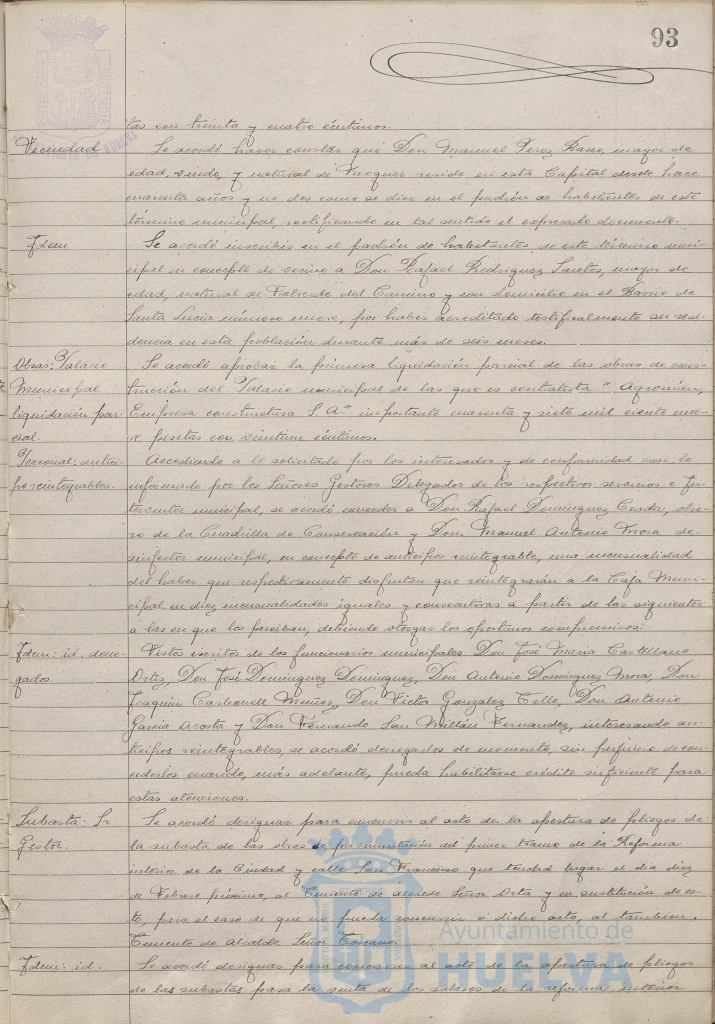 93
tas con treinta y cuatro céntimos.
Vecindad
Se acordó hacer constar que Don Manuel Perez Raseo, mayor de
edad, viudo, y natural de Moguer reside en esta Capital desde hace
cuarenta años y no dos como se dice en el padrón de habitantes de este
término municipal, rectificando en tal sentido el expresado documento.
Idem
Se acordó inscribir en el padrón de habitantes de este término muni-
cipal en concepto de vecino a Don Rafael Rodriguez Santos, mayor de
edad, natural de Valverde del Camino y con domicilio en el Barrio de
Santa Lucia número nueve, por haber acreditado testificalmente su resi-
dencia en esta población durante más de seis meses.
Obras: Palacio
Municipal
liquidación par-
cial.
Se acordó aprobar la primera liquidación parcial de las obras de cons-
trucción del Palacio municipal de las que es contratista "Agroman,
Empresa constructora S.A" importante cuarenta y siete mil ciento nue-
ve pesetas con veintiun céntimos.
Personal: antici-
pos reintegrables.
Accediendo a lo solicitado por los interesados y de conformidad con lo
informado por los Señores Gestores Delegados de los respectivos servicios e In-
terventor municipal, se acordó conceder a Don Rafael Dominguez Cerda, obre-
ro de la Cuadrilla de Conservación y Don Manuel Antonio Mora de-
sinfector municipal, en concepto de anticipo reintegrable, una mensualidad
del haber que respectivamente disfrutan que reintegrarán a la Caja Muni-
cipal en diez mensualidades iguales y consecutivas a partir de las siguientes
a las en que la perciban, debiendo otorgar los oportunos compromisos.
Idem: id. dene-
gados.
Vistos escritos de los funcionarios municipales Don José Maria Castellano
Ortiz, Don José Dominguez Dominguez, Don Antonio Dominguez Mora, Don
Joaquin Carbonell Muñoz, Don Victor Gonzalez Tello, Don Antonio
Garcia Acosta y Don Fernando San Millán Fernandez, interesando an-
ticipos reintegrables, se acordó denegarlos de momento, sin perjuicio de con-
cederlos cuando, más adelante, pueda habilitarse crédito suficiente para
estas atenciones.
Subasta: Sr
Gestor.
Se acordó designar para concurrir al acto de la apertura de pliegos de
la subasta de las obras de pavimentación del primer tramo de la Reforma
interior de la Ciudad y calle San Francisco que tendrá lugar el dia diez
de Febrero próximo, al Teniente de alcalde Señor Orta y en sustitución de es-
te, para el caso de que no pueda concurrir a dicho acto, al tambien
Teniente de Alcalde Señor Toscano.
Idem: id.
Se acordó designar para concurrir al acto de la apertura de pliegos
de las subastas para la venta de los solares de la reforma interior
Ayuntamiento de
HUELVA